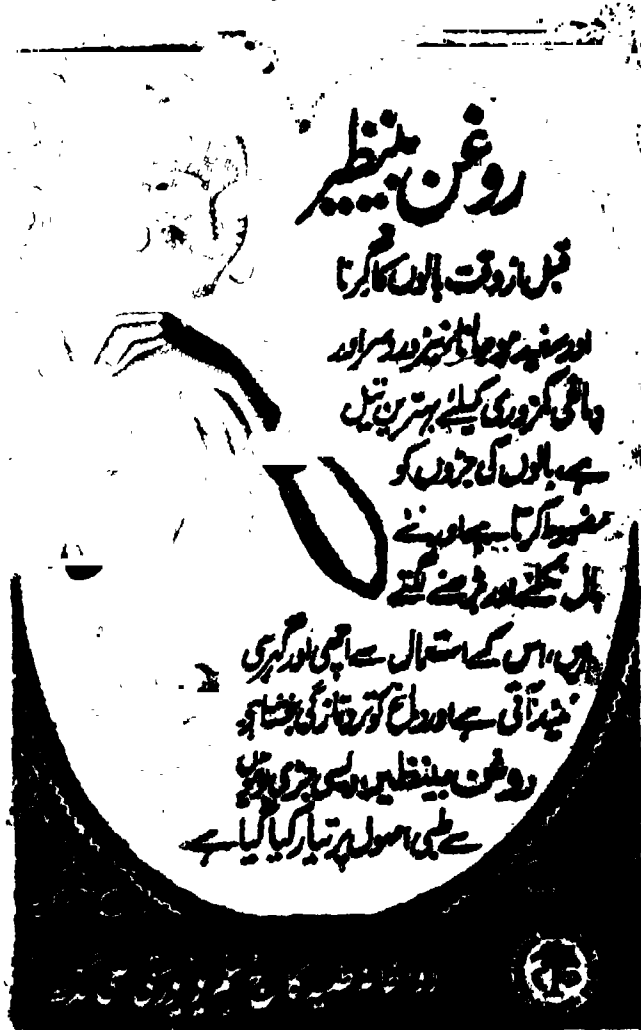 روغن بینظیر
قبل از وقت بالوں کا گرنا
اور سفید ہو جانا نیز درد سر اور
دماغی کمزوری کیلئے بہترین تیل
ہے، بالوں کی جڑوں کو
مضبوط کرتا ہے اور نئے
بال نکلنے اور بڑھنے لگتے
ہیں، اس کے استعمال سے اچھی اور گہری
نیند آتی ہے اور دماغ کو تروتازگی بخشتا ہے
روغن بینظیر دیسی جڑی بوٹیوں
سے طبی اصول پر تیار کیا گیا ہے
دواخانہ طبیہ کالج مسلم یونیورسٹی علی گڑھ